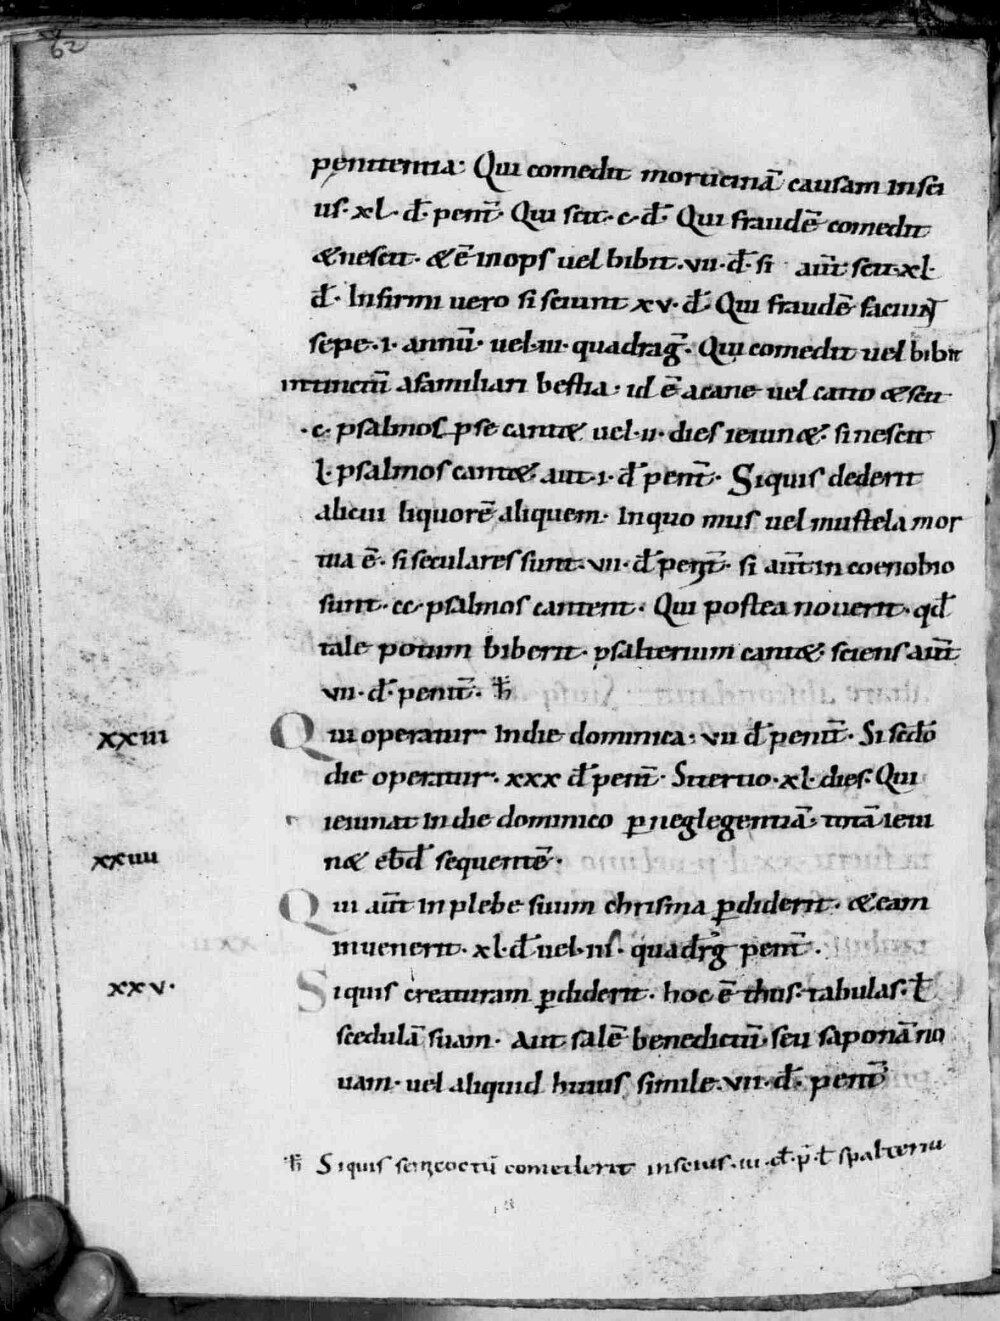 62
penitentia. Qui comedit morticinā causam insci
us. xl. d̄. penit̄. Qui scit. c. d̄. Qui fraudē comedit
& nescit. & ē inops uel bibit. vii. d̄. si aūt scit. xl.
d̄. Infirmi uero si sciunt xv. d̄. Qui fraudē faciunt
sepe. i. annū. uel. iii. quadraḡ. Qui comedit uel bibit
intinctū a familiari bestia. id ē a cane uel catto & scit
.c. psalmos p se cant& uel. ii. dies ieiun&. si nescit
l. psalmos cant&. aut. i. d̄ penit̄. Siquis dederit
alicui liquorē aliquem. In quo mus uel mustela mor
tua ē. si seculares sunt. vii. d̄ penit̄. si aūt in coenobio
sunt. cc. psalmos cantent. Qui postea nouerit. qd̄
tale potum biberit. psalterium cant&. sciens aūt
vii. d̄. penit̄. h̄
xxiii Qui operatur In die dominica. vii d̄ penit̄. Si sedō
die operatur. xxx d̄ penit̄. Si tertio. xl. dies. Qui
ieiunat In die dominico p̱ neglegentiā. totā ieiu
xxiiii n& ebd̄ sequentē.
Qui aūt in plebe suum chrisma p̱diderit. & eam
inuenerit. xl. d̄ uel. iii. quadrḡ penit̄.
xxv. Siquis creaturam p̱diderit. hoc ē thus. tabulas. ł
scedulā suam. Aut salē benedictū. seu saponā no
uam. uel aliquid huius simile. vii. d̄. penit̄
h̄ Siquis semicoctū comederit inscius. iii. d̄. p̄. ł spalteriū